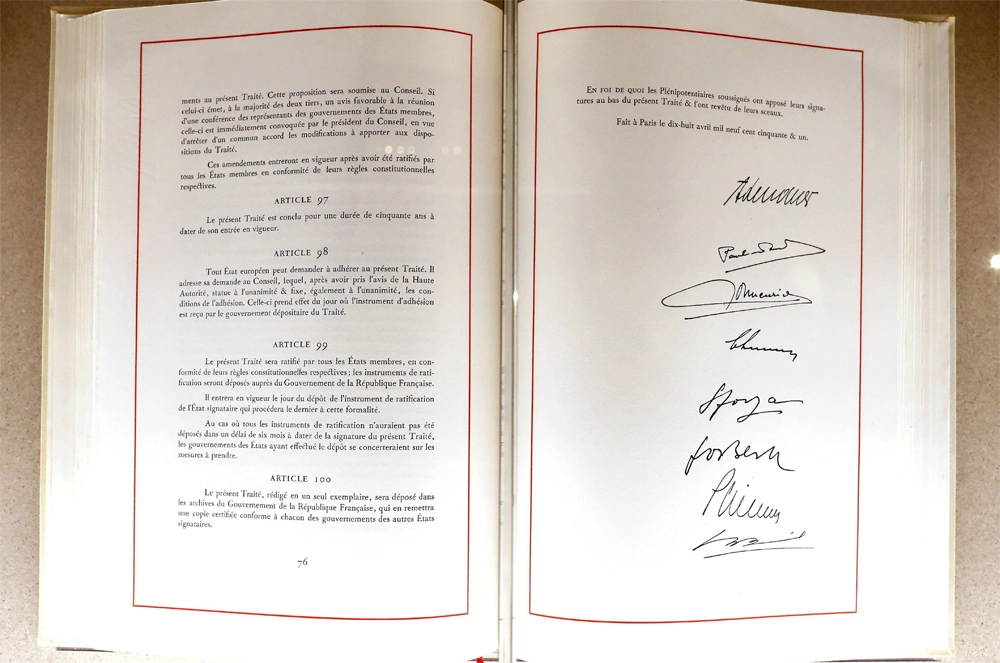 ments au présent Traité. Cette proposition sera soumise au Conseil. Si
celui-ci émet, à la majorité des deux tiers, un avis favorable à la réunion
d'une conférence des représentants des gouvernements des États membres,
celle-ci est immédiatement convoquée par le président du Conseil, en vue
d'arrêter d'un commun accord les modifications à apporter aux dispo-
sitions du Traité.
Ces amendements entreront en vigueur après avoir été ratifiés par
tous les États membres en conformité de leurs règles constitutionnelles
respectives.
ARTICLE 97
Le présent Traité est conclu pour une durée de cinquante ans à
dater de son entrée en vigueur.
ARTICLE 98
Tout État européen peut demander à adhérer au présent Traité. Il
adresse sa demande au Conseil, lequel, après avoir pris l'avis de la Haute
Autorité, statue à l'unanimité & fixe, également à l'unanimité, les con-
ditions de l'adhésion. Celle-ci prend effet du jour où l'instrument d'adhésion
est reçu par le gouvernement dépositaire du Traité.
ARTICLE 99
Le présent Traité sera ratifié par tous les États membres, en con-
formité de leurs règles constitutionnelles respectives; les instruments de rati-
fication seront déposés auprès du Gouvernement de la République Française.
Il entrera en vigueur le jour du dépôt de l'instrument de ratification
de l'État signataire qui procédera le dernier à cette formalité.
Au cas où tous les instruments de ratification n'auraient pas été
déposés dans un délai de six mois à dater de la signature du présent Traité,
les gouvernements des États ayant effectué le dépôt se concerteraient sur les
mesures à prendre.
ARTICLE 100
Le présent Traité, rédigé en un seul exemplaire, sera déposé dans
les archives du Gouvernement de la République Française, qui en remettra
une copie certifiée conforme à chacun des gouvernements des autres États
signataires.
76
EN FOI DE QUOI les Plénipotentiaires soussignés ont apposé leurs signa-
tures au bas du présent Traité & l'ont revêtu de leurs sceaux.
Fait à Paris le dix-huit avril mil neuf cent cinquante & un.
Adenauer
Sforza